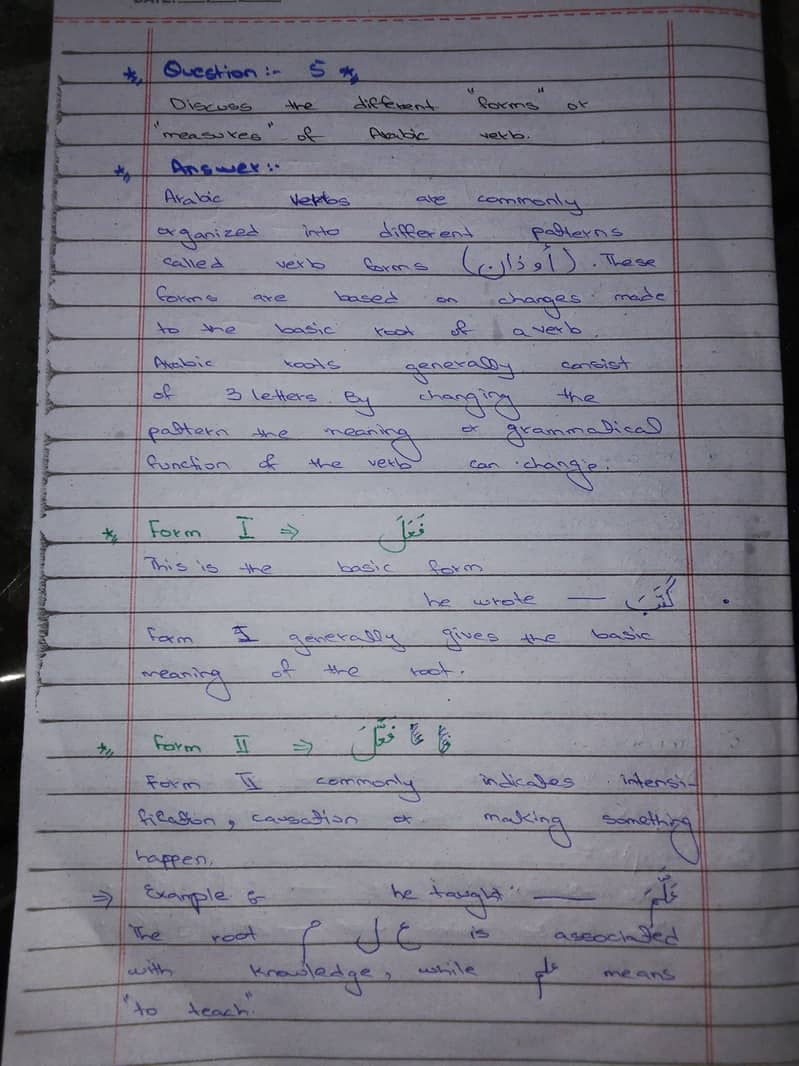 Question:- 5
Discuss the different "forms" or
"measures" of Arabic verb.
Answer:-
Arabic verbs are commonly
organized into different patterns
called verb forms (أوزان). These
forms are based on changes made
to the basic root of a verb.
Arabic roots generally consist
of 3 letters. By changing the
pattern the meaning or grammatical
function of the verb can change.
Form I ⇒ فَعَلَ
This is the basic form
he wrote — كَتَبَ .
Form I generally gives the basic
meaning of the root.
Form II ⇒ فَعَّلَ
Form II commonly indicates intensi-
fication, causation or making something
happen.
⇒ Example : he taught — عَلَّمَ
The root ع ل م is associated
with knowledge, while علم means
"to teach".